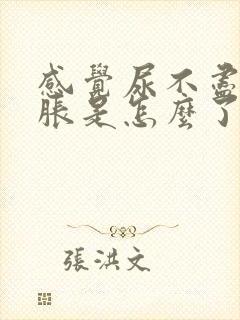 感覺尿不盡
脹是怎麼了
張洪文